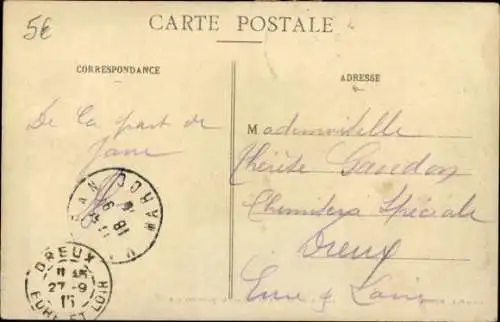 5€
CARTE POSTALE
CORRESPONDANCE
ADRESSE
De la part de
Jane
Mademoiselle
Thérèse Gaudon
Chemiserie Spéciale
Dreux
Eure & Loir
MAROC
18 9
DREUX
27-9
15
EURE ET LOIR